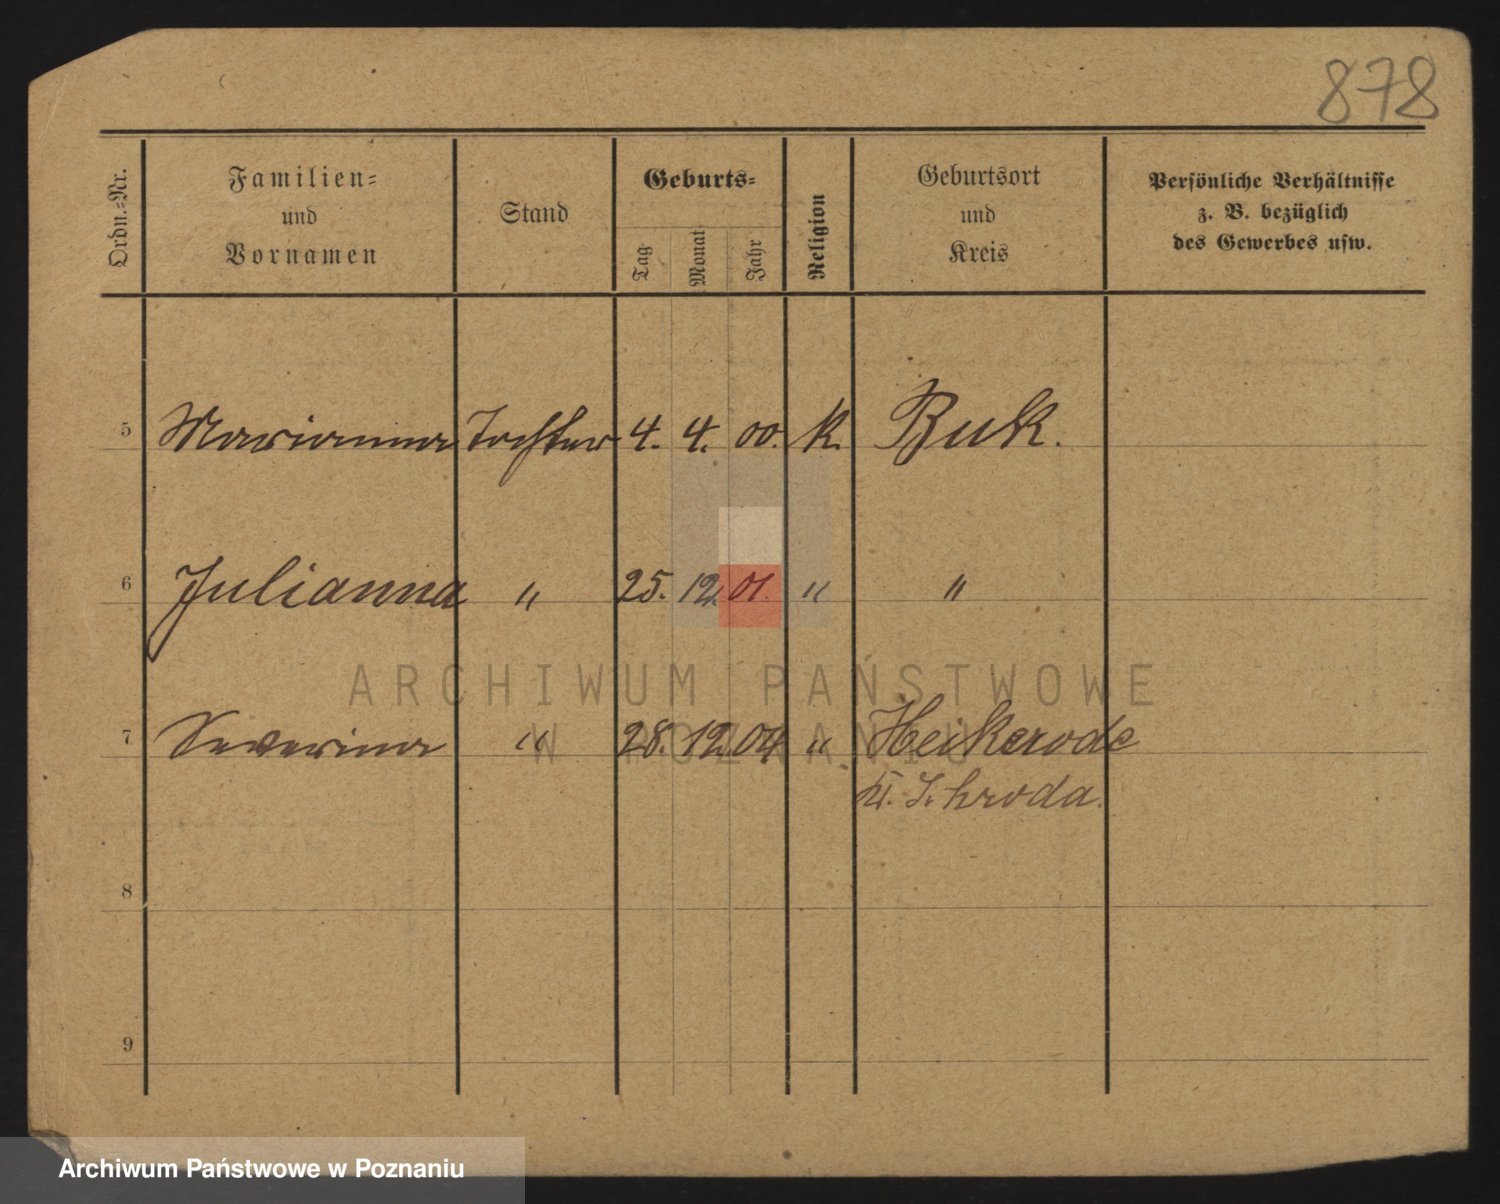 878
Ordn.-Nr.
Familien-
und
Vornamen
Stand
Geburts-
Tag
Monat
Jahr
Religion
Geburtsort
und
Kreis
Persönliche Verhältnisse
z. B. bezüglich
des Gewerbes usw.
5 Marianna Tochter 4. 4. 00. k. Buk.
6 Julianna " 25. 12. 01. " "
7 Severina " 28. 12. 04 " Heikerode
Kr. Schroda.
8
9
ARCHIWUM PAŃSTWOWE
W POZNANIU
Archiwum Państwowe w Poznaniu